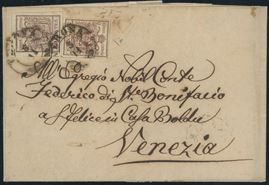 VERONA
All' Egregio Nobil Conte
Federico di S.n Bonifacio
a S. Felice in Casa Boldù
Venezia